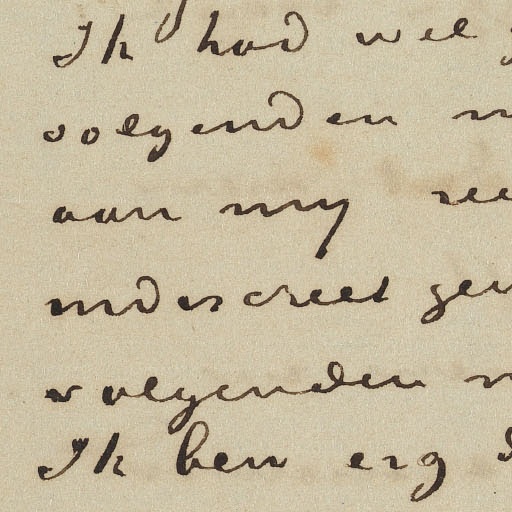 Ik had wel
volgenden
aan mij
indiscreet
volgenden
Ik ben erg